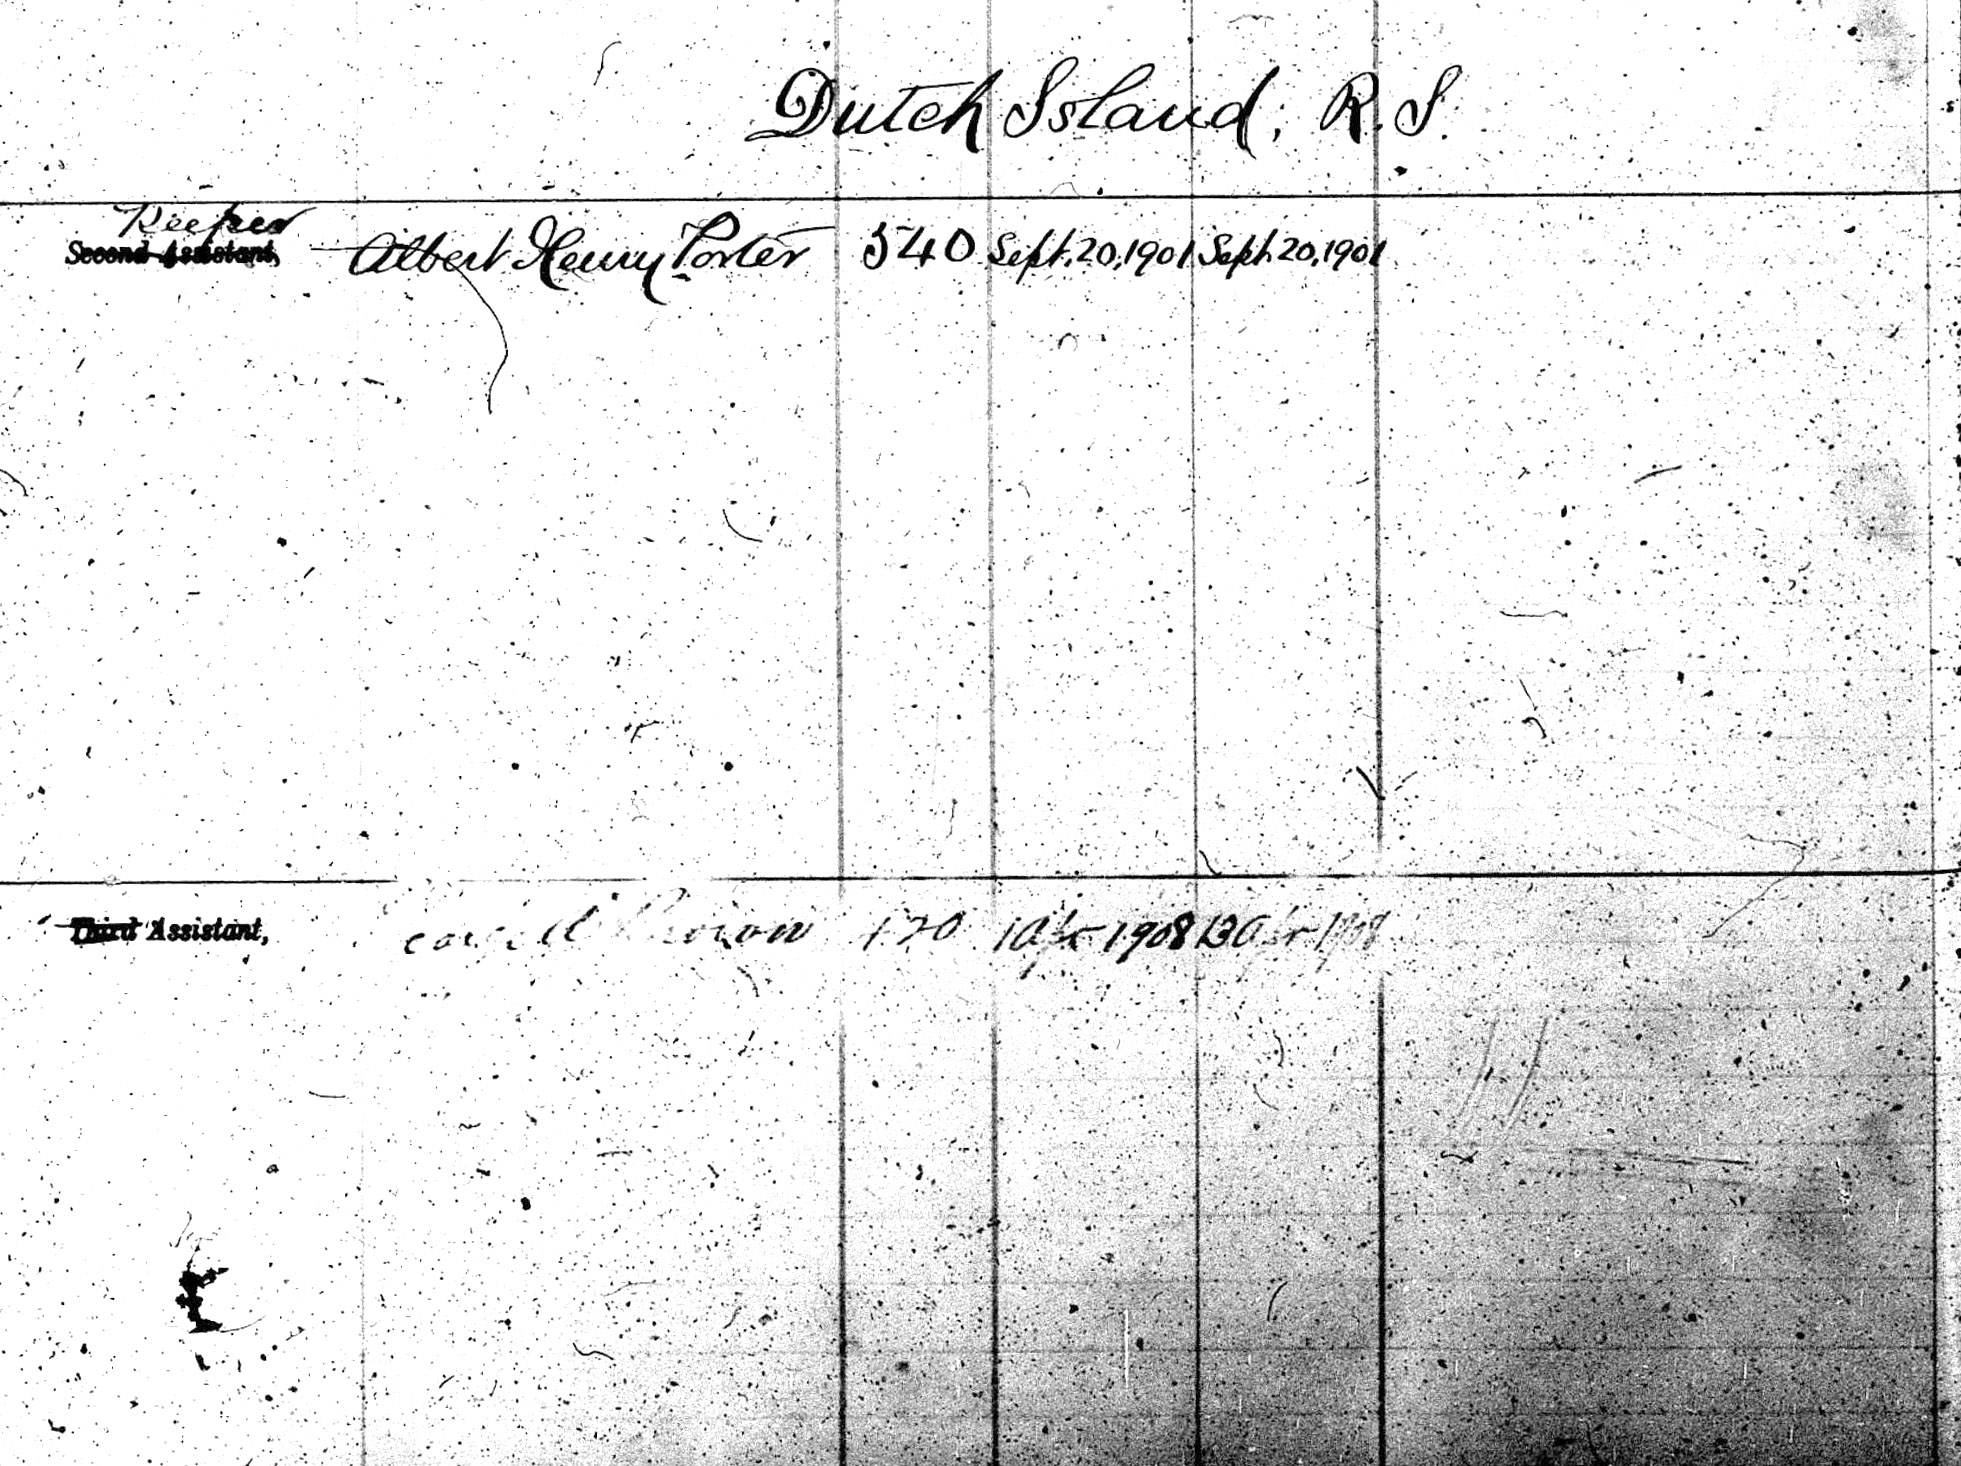 Dutch Island, R.I.
Keeper
Second Assistant, Albert Henry Porter 540 Sept. 20, 1901 Sept. 20, 1901
Third Assistant, Brown 120 Apr 1908 13 Apr 1908